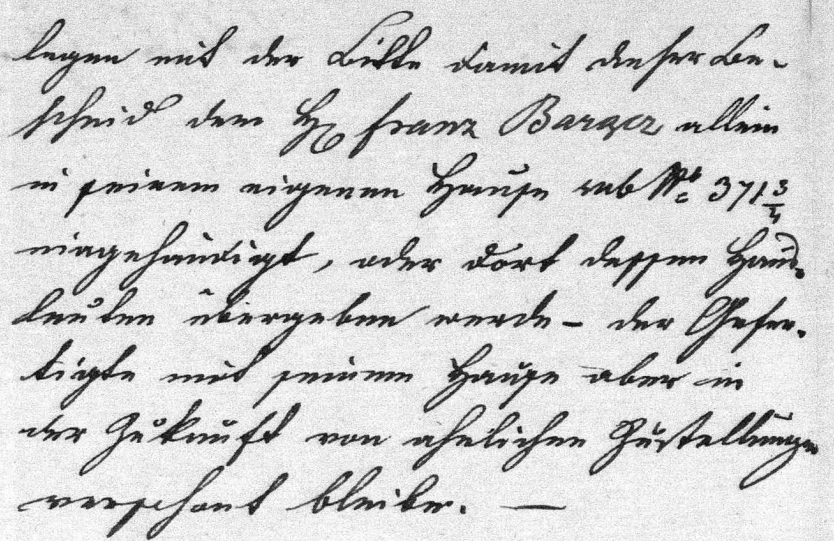 legen mit der Bitte damit dieser Be-
scheid dem H. Franz Barger allein
in seinem eigenen Hause sub No 371 3/4
eingehändigt, oder dort dessen Haus-
leuten übergeben werde – der Gefer-
tigte mit seinem Hause aber in
der Zukunft von ähnlichen Zustellungen
verschont bleibe. —